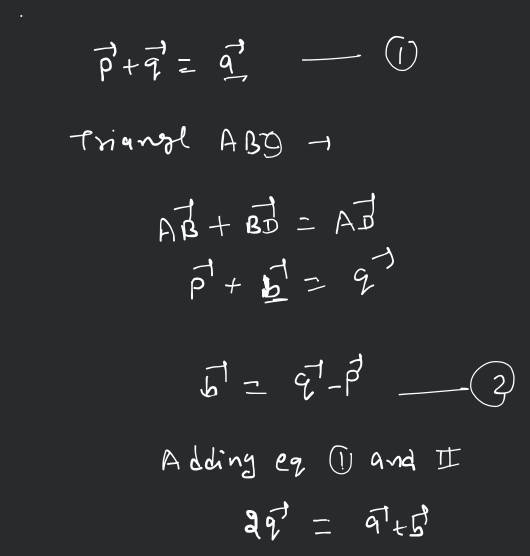 p⃗ + q⃗ = a⃗ —— ①
Triangl ABD →
AB⃗ + BD⃗ = AD⃗
p⃗ + b⃗ = q⃗
b⃗ = q⃗ - p⃗ —— ②
Adding eq ① and II
2q⃗ = a⃗ + b⃗